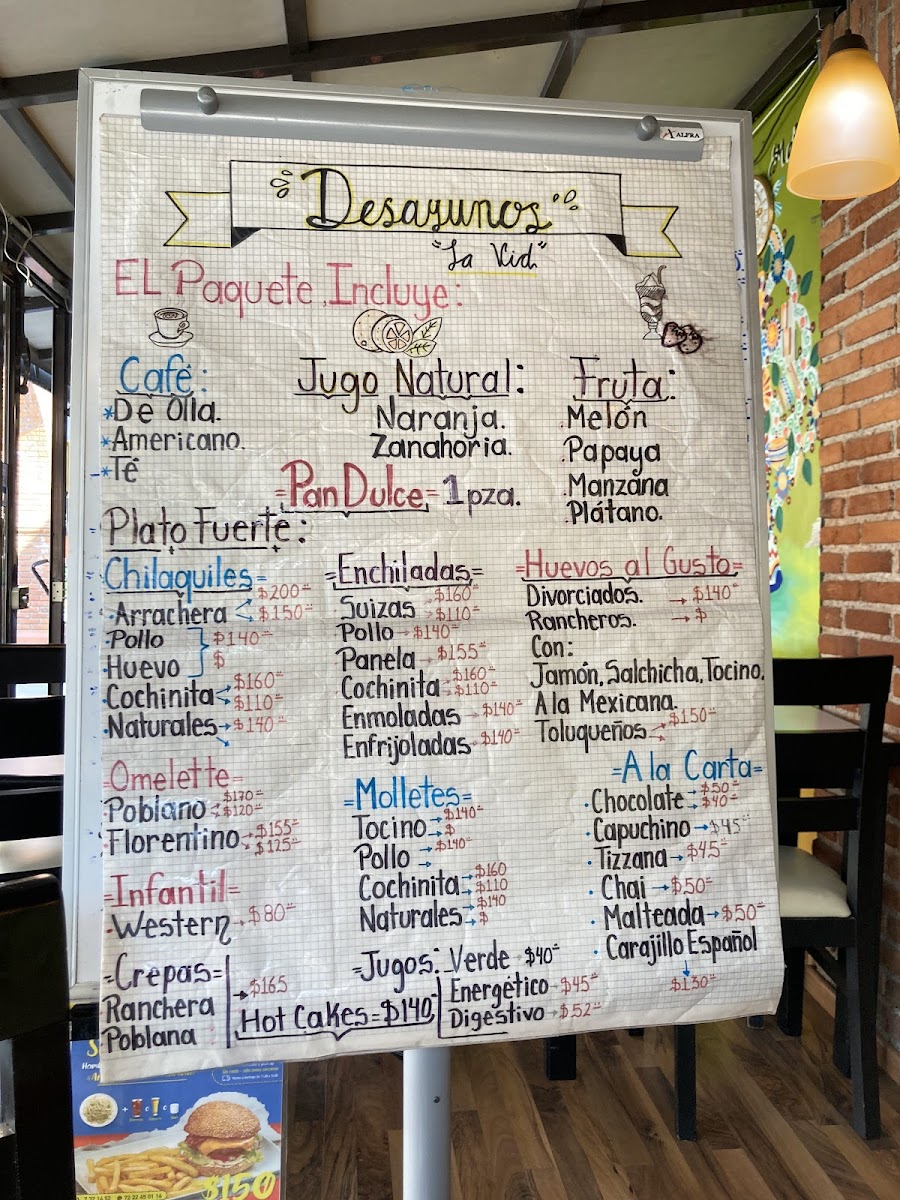 ALFRA
Desayunos
"La Vid"
EL Paquete Incluye:
Café:
*De Olla.
*Americano.
*Té
Jugo Natural:
Naranja.
Zanahoria.
Fruta:
.Melón
.Papaya
.Manzana
.Plátano.
=Pan Dulce= 1 pza.
Plato Fuerte:
Chilaquiles=
·Arrachera $200= $150=
·Pollo
·Huevo } $140= $
·Cochinita $160= $110=
·Naturales → $140=
=Omelette=
·Poblano $170= $120=
·Florentino $155= $125=
=Infantil=
·Western → $80=
=Crepas=
Ranchera
Poblana
→ $165
=Enchiladas=
Suizas $160= $110=
Pollo → $140=
Panela → $155=
Cochinita $160= $110=
Enmoladas → $140=
Enfrijoladas → $140=
=Molletes=
Tocino $140= $
Pollo $140=
Cochinita $160 $110
Naturales $140 $
Hot Cakes = $140
=Huevos al Gusto=
Divorciados. → $140=
Rancheros. → $
Con:
Jamón, Salchicha, Tocino.
A la Mexicana.
Toluqueños → $150=
=A la Carta=
· Chocolate $50= $40=
· Capuchino → $45=
· Tizzana → $45=
· Chai → $50=
· Malteada → $50=
· Carajillo Español
$130=
=Jugos: Verde → $40=
Energético → $45=
Digestivo → $52=
$150